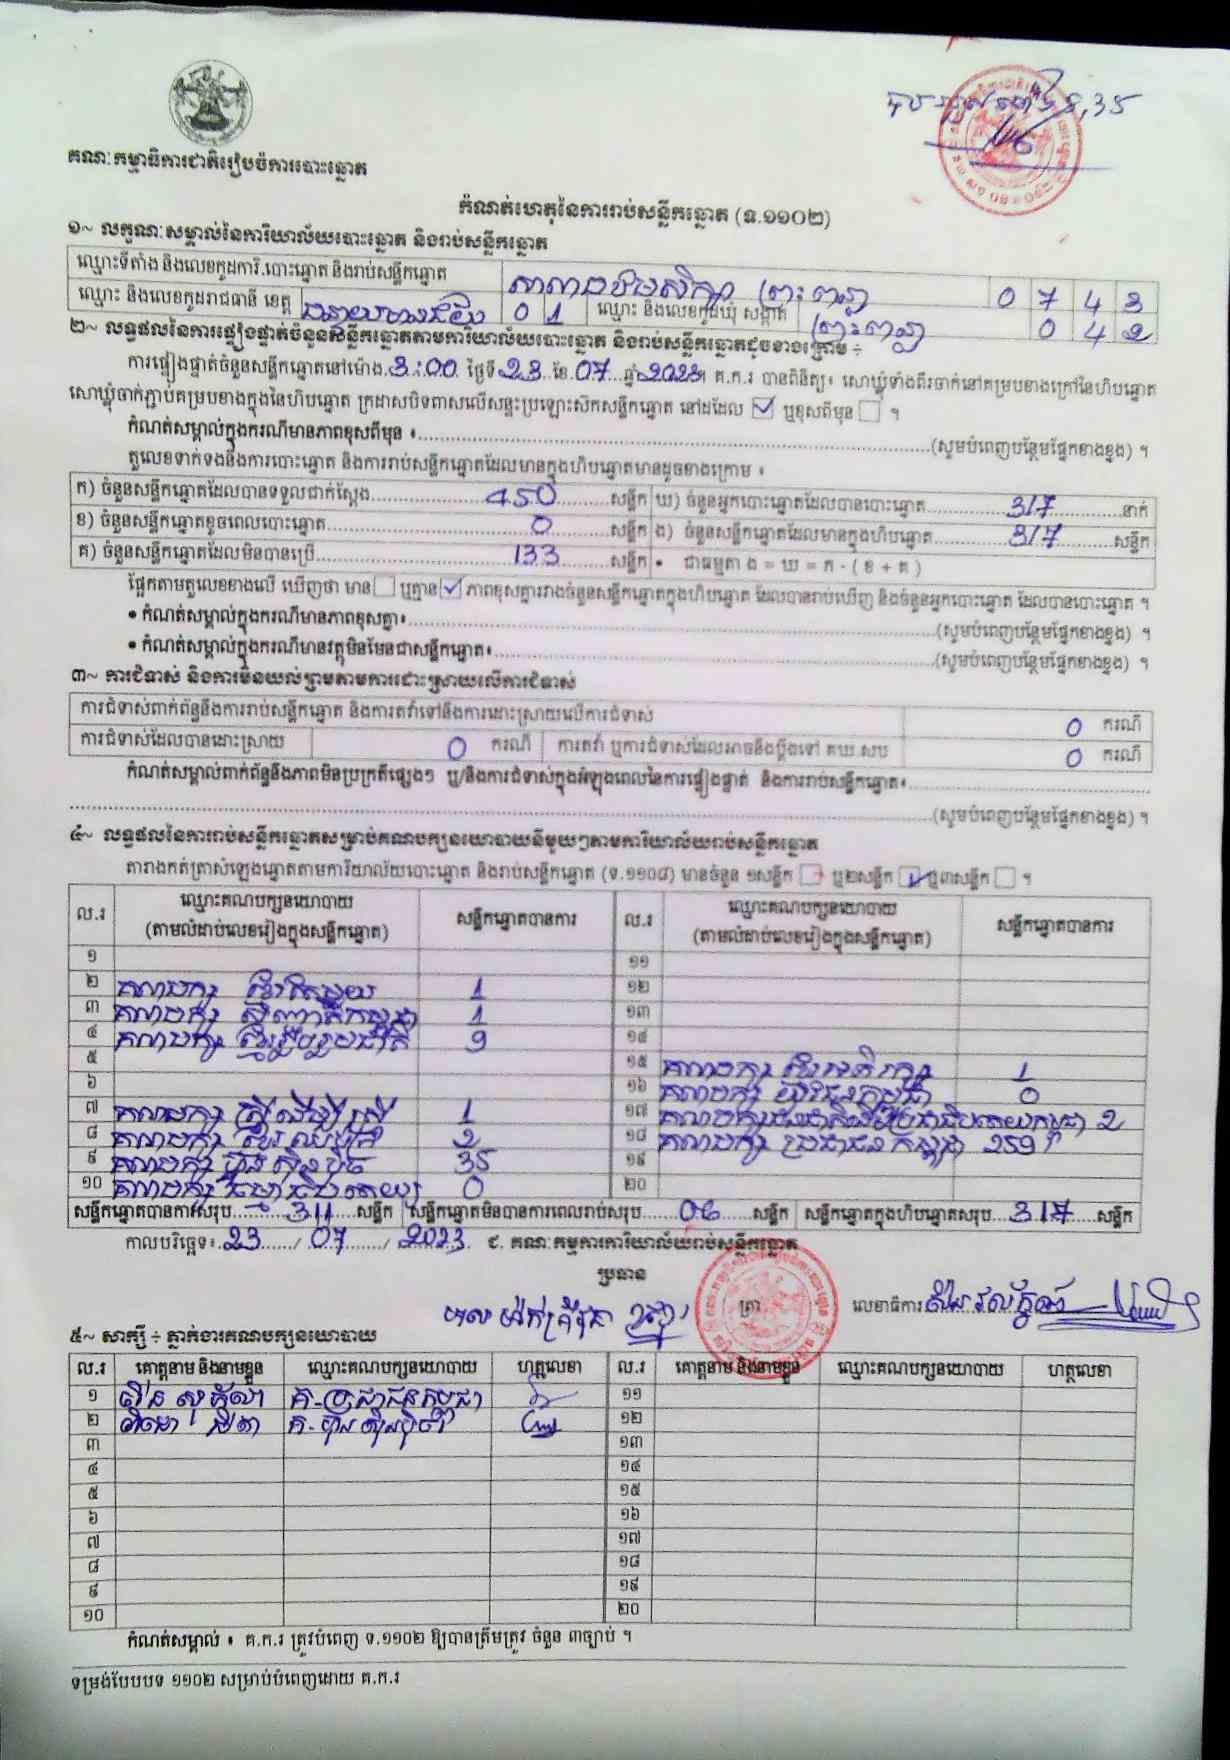 គណៈកម្មាធិការជាតិរៀបចំការបោះឆ្នោត
កំណត់ហេតុនៃការរាប់សន្លឹកឆ្នោត (ទ.១១០២)
១~ លក្ខណៈសម្គាល់នៃការិយាល័យបោះឆ្នោត និងរាប់សន្លឹកឆ្នោត
ឈ្មោះទីតាំង និងលេខកូដការិ.បោះឆ្នោត និងរាប់សន្លឹកឆ្នោត សាលាបឋមសិក្សា ព្រះពន្លា 0 7 4 3
ឈ្មោះ និងលេខកូដរាជធានី ខេត្ត បន្ទាយមានជ័យ 0 1 ឈ្មោះ និងលេខកូដឃុំ សង្កាត់ ព្រះពន្លា 0 4 2
២~ លទ្ធផលនៃការផ្ទៀងផ្ទាត់ចំនួនសន្លឹកឆ្នោតតាមការិយាល័យបោះឆ្នោត និងរាប់សន្លឹកឆ្នោតដូចខាងក្រោម ÷
ការផ្ទៀងផ្ទាត់ចំនួនសន្លឹកឆ្នោតនៅម៉ោង 3:00 ថ្ងៃទី 23 ខែ 07 ឆ្នាំ 2023។ គ.ក.រ បានពិនិត្យ៖ សោឃ្លុំទាំងពីរចាក់នៅគម្របខាងក្រៅនៃហិបឆ្នោត
សោឃ្លុំចាក់ភ្ជាប់គម្របខាងក្នុងនៃហិបឆ្នោត ក្រដាសបិទពាសលើសន្ទះប្រឡោះសិកសន្លឹកឆ្នោត នៅដដែល ☑ ឬខុសពីមុន ☐ ។
កំណត់សម្គាល់ក្នុងករណីមានភាពខុសពីមុន ៖ (សូមបំពេញបន្ថែមផ្នែកខាងខ្នង) ។
តួលេខទាក់ទងនឹងការបោះឆ្នោត និងការរាប់សន្លឹកឆ្នោតដែលមានក្នុងហិបឆ្នោតមានដូចខាងក្រោម ៖
ក) ចំនួនសន្លឹកឆ្នោតដែលបានទទួលជាក់ស្តែង 450 សន្លឹក ឃ) ចំនួនអ្នកបោះឆ្នោតដែលបានបោះឆ្នោត 317 នាក់
ខ) ចំនួនសន្លឹកឆ្នោតខូចពេលបោះឆ្នោត 0 សន្លឹក ង) ចំនួនសន្លឹកឆ្នោតដែលមានក្នុងហិបឆ្នោត 317 សន្លឹក
គ) ចំនួនសន្លឹកឆ្នោតដែលមិនបានប្រើ 133 សន្លឹក • ជាធម្មតា ង = ឃ = ក - ( ខ + គ )
ផ្អែកតាមតួលេខខាងលើ ឃើញថា មាន ☐ ឬគ្មាន ☑ ភាពខុសគ្នារវាងចំនួនសន្លឹកឆ្នោតក្នុងហិបឆ្នោត ដែលបានរាប់ឃើញ និងចំនួនអ្នកបោះឆ្នោត ដែលបានបោះឆ្នោត ។
• កំណត់សម្គាល់ក្នុងករណីមានភាពខុសគ្នា៖ (សូមបំពេញបន្ថែមផ្នែកខាងខ្នង) ។
• កំណត់សម្គាល់ក្នុងករណីមានវត្ថុមិនមែនជាសន្លឹកឆ្នោត៖ (សូមបំពេញបន្ថែមផ្នែកខាងខ្នង) ។
៣~ ការជំទាស់ និងការមិនយល់ព្រមតាមការដោះស្រាយលើការជំទាស់
ការជំទាស់ពាក់ព័ន្ធនឹងការរាប់សន្លឹកឆ្នោត និងការតវ៉ាទៅនឹងការដោះស្រាយលើការជំទាស់ 0 ករណី
ការជំទាស់ដែលបានដោះស្រាយ 0 ករណី ការតវ៉ា ឬការជំទាស់ដែលអាចនឹងប្តឹងទៅ គឃ.សប 0 ករណី
កំណត់សម្គាល់ពាក់ព័ន្ធនឹងភាពមិនប្រក្រតីផ្សេងៗ ឬ/និងការជំទាស់ក្នុងអំឡុងពេលនៃការផ្ទៀងផ្ទាត់ និងការរាប់សន្លឹកឆ្នោត៖
(សូមបំពេញបន្ថែមផ្នែកខាងខ្នង) ។
៤~ លទ្ធផលនៃការរាប់សន្លឹកឆ្នោតសម្រាប់គណបក្សនយោបាយនីមួយៗតាមការិយាល័យរាប់សន្លឹកឆ្នោត
តារាងកត់ត្រាសំឡេងឆ្នោតតាមការិយាល័យបោះឆ្នោត និងរាប់សន្លឹកឆ្នោត (ទ.១១០៨) មានចំនួន ១សន្លឹក ☐ ឬ២សន្លឹក ☑ ឬ៣សន្លឹក ☐ ។
ល.រ ឈ្មោះគណបក្សនយោបាយ (តាមលំដាប់លេខរៀងក្នុងសន្លឹកឆ្នោត) សន្លឹកឆ្នោតបានការ ល.រ ឈ្មោះគណបក្សនយោបាយ (តាមលំដាប់លេខរៀងក្នុងសន្លឹកឆ្នោត) សន្លឹកឆ្នោតបានការ
១ ១១
២ គណបក្ស ខ្មែរតែមួយ 1 ១២
៣ គណបក្ស សញ្ជាតិកម្ពុជា 1 ១៣
៤ គណបក្ស ខ្មែររួបរួមជាតិ 9 ១៤
៥ ១៥ គណបក្ស ខ្មែរអភិរក្ស 1
៦ ១៦ គណបក្ស យុវជនកម្ពុជា 0
៧ គណបក្ស ស្ត្រីដើម្បីស្ត្រី 1 ១៧ 2
៨ គណបក្ស 2 ១៨ គណបក្ស ប្រជាជនកម្ពុជា 259
៩ គណបក្ស ហ៊្វុនស៊ិនប៉ិច 35 ១៩
១០ គណបក្ស ធម្មាធិបតេយ្យ 0 ២០
សន្លឹកឆ្នោតបានការសរុប 311 សន្លឹក សន្លឹកឆ្នោតមិនបានការពេលរាប់សរុប 06 សន្លឹក សន្លឹកឆ្នោតក្នុងហិបឆ្នោតសរុប 317 សន្លឹក
កាលបរិច្ឆេទ៖ 23 / 07 / 2023 ៩. គណៈកម្មការការិយាល័យរាប់សន្លឹកឆ្នោត
ប្រធាន
ត្រា លេខាធិការ
៥~ សាក្សី ÷ ភ្នាក់ងារគណបក្សនយោបាយ
ល.រ គោត្តនាម និងនាមខ្លួន ឈ្មោះគណបក្សនយោបាយ ហត្ថលេខា ល.រ គោត្តនាម និងនាមខ្លួន ឈ្មោះគណបក្សនយោបាយ ហត្ថលេខា
១ គ-ប្រជាជនកម្ពុជា ១១
២ គ-ហ៊្វុនស៊ិនប៉ិច ១២
៣ ១៣
៤ ១៤
៥ ១៥
៦ ១៦
៧ ១៧
៨ ១៨
៩ ១៩
១០ ២០
កំណត់សម្គាល់ ៖ គ.ក.រ ត្រូវបំពេញ ទ.១១០២ ឱ្យបានត្រឹមត្រូវ ចំនួន ៣ច្បាប់ ។
ទម្រង់បែបបទ ១១០២ សម្រាប់បំពេញដោយ គ.ក.រ